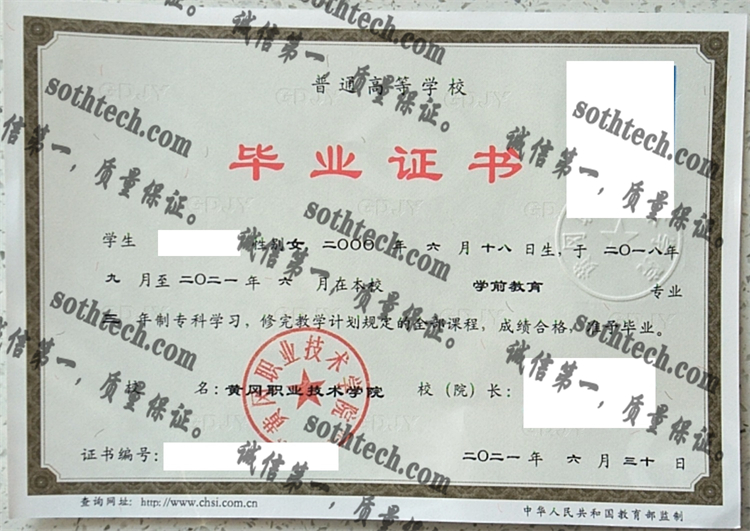 普通高等学校
毕业证书
学生 性别女，二〇〇〇年 六 月十八日生，于二〇一八年
九 月至二〇二一年 六 月在本校 学前教育 专业
三 年制专科学习，修完教学计划规定的全部课程，成绩合格，准予毕业。
校 名：黄冈职业技术学院 校（院）长：
黄冈职业技术学院
证书编号： 二〇二一年 六 月 三十 日
查询网址：http://www.chsi.com.cn 中华人民共和国教育部监制
sothtech.com
诚信第一，质量保证。
sothtech.com
诚信第一，质量保证。
sothtech.com
诚信第一，质量保证。
sothtech.com
诚信第一，质量保证。
sothtech.com
诚信第一，质量保证。
sothtech.com
诚信第一，质量保证。
sothtech.com
诚信第一，质量保证。
sothtech.com
诚信第一，质量保证。